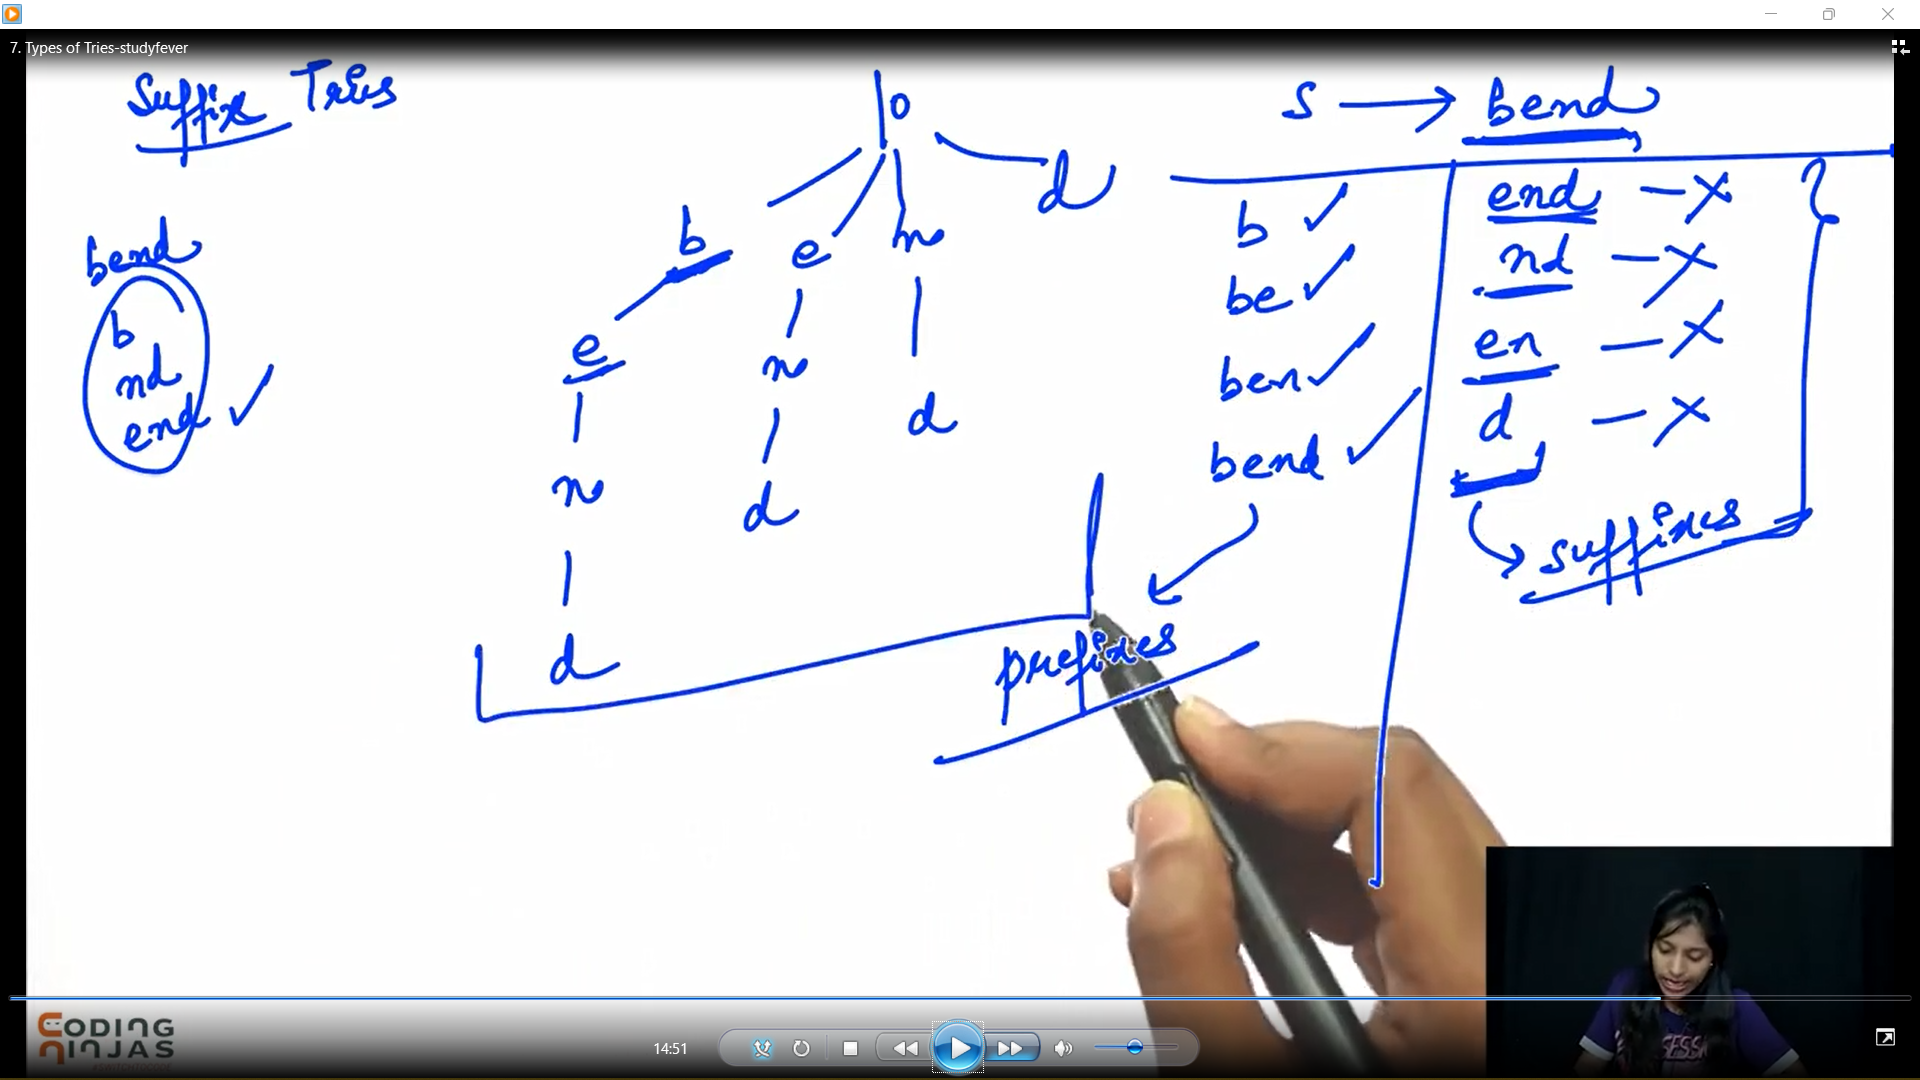 7. Types of Tries-studyfever
Suffix Tries
S → bend
bend
b
nd
end ✓
\0
b e n d
e n d
n d
d
b ✓
be ✓
ben ✓
bend ✓
prefixes
end - X
nd - X
en - X
d - X
suffixes
CODING
NINJAS
14:51